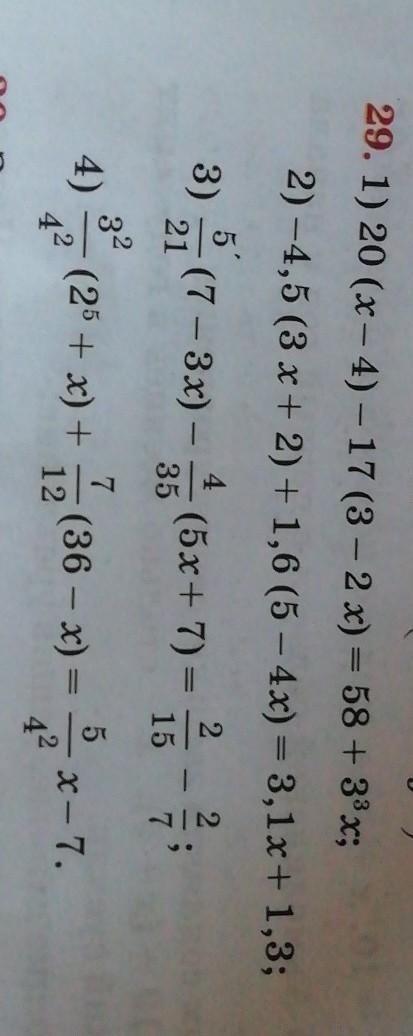 29. 1) 20 (x – 4) – 17 (3 – 2 x) = 58 + 3³ x;
2) –4,5 (3 x + 2) + 1,6 (5 – 4x) = 3,1x + 1,3;
3) 5/21 (7 – 3x) – 4/35 (5x + 7) = 2/15 – 2/7;
4) 3²/4² (2⁵ + x) + 7/12 (36 – x) = 5/4² x – 7.